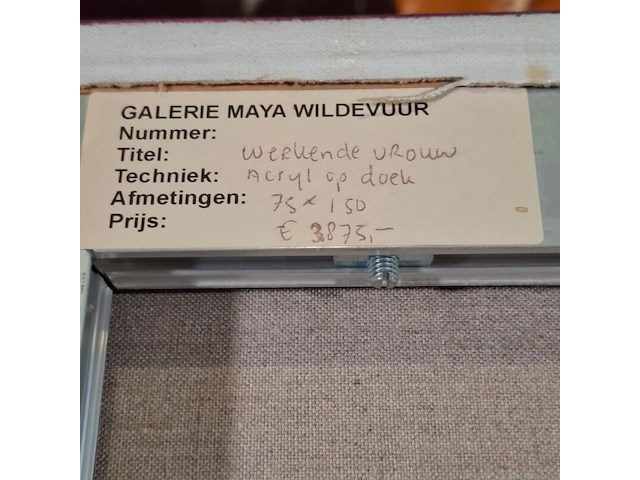 GALERIE MAYA WILDEVUUR
Nummer:
Titel: Werkende vrouw
Techniek: Acryl op doek
Afmetingen: 75 x 150
Prijs: € 3875,-